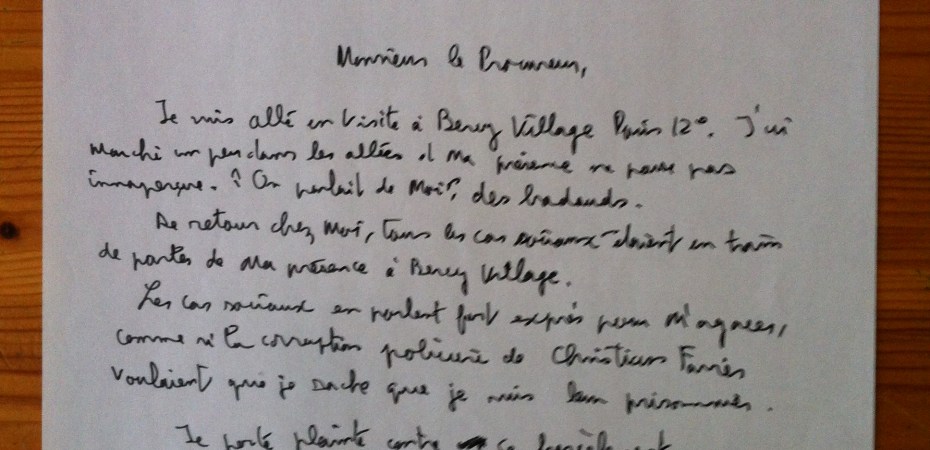 Monsieur le Procureur,
Je suis allé en visite à Bercy Village Paris 12e. J'ai
marché un peu dans les allées et ma présence ne passe pas
innaperçue. On parlait de Moi, des badauds.
De retour chez moi, tous les cas sociaux étaient en train
de parler de ma présence à Bercy Village.
Les cas sociaux en parlent fort exprès pour m'agacer,
comme si la corruption policière de Christian
voulaient que je sache que je suis leur prisonnier.
Je porte plainte contre ce harcèlement